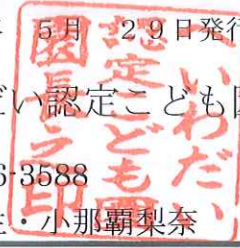 5月 29日発行
だい認定こども園
6-3588
・小那覇梨奈
いわだい
認定こども園
園長之印